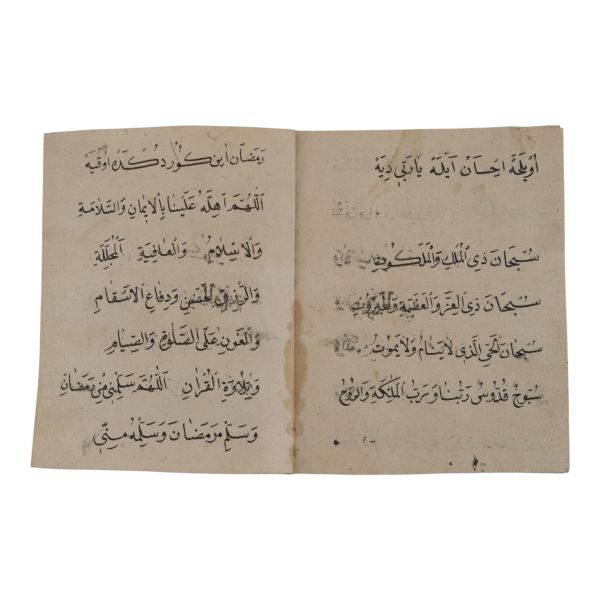 اُولمَهْ اِحْسَانْ اَيْلَهْ يَارَبِّى دِيَهْ
سُبْحَانَ ذِي الْمُلْكِ وَالْمَلَكُوتِ
سُبْحَانَ ذِي الْعِزِّ وَالْعَظَمَةِ وَالْجَبَرُوتِ
سُبْحَانَ الْحَيِّ الَّذِى لَا يَنَامُ وَلَا يَمُوتُ
سُبُّوحٌ قُدُّوسٌ رَبُّنَا وَرَبُّ الْمَلٰئِكَةِ وَالرُّوحِ
رَمَضَان اَيِن كُورْدُكدَهْ اُوقِيَهْ
اَللّٰهُمَّ اَهِلَّهُ عَلَيْنَا بِالْاِيمَانِ وَالسَّلَامَةِ
وَالْاِسْلَامِ وَالْعَافِيَةِ الْمُجَلَّلَةِ
وَالرِّزْقِ وَدِفَاعِ الْاَسْقَامِ
وَالْعَوْنِ عَلَى الصَّلٰوةِ وَالصِّيَامِ
وَتِلَاوَةِ الْقُرْاٰنِ اَللّٰهُمَّ سَلِّمْنِى مِنْ رَمَضَانَ
وَسَلِّمْ رَمَضَانَ وَسَلِّمْهُ مِنِّى